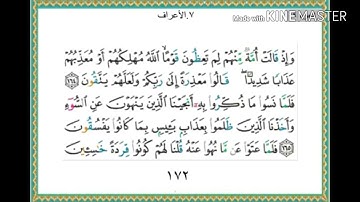 ٧.الأعراف
Made with KINEMASTER
وَإِذْ قَالَتْ أُمَّةٌ مِّنْهُمْ لِمَ تَعِظُونَ قَوْمًا ٱللَّهُ مُهْلِكُهُمْ أَوْ مُعَذِّبُهُمْ
عَذَابًا شَدِيدًا قَالُوا۟ مَعْذِرَةً إِلَىٰ رَبِّكُمْ وَلَعَلَّهُمْ يَتَّقُونَ ١٦٤
فَلَمَّا نَسُوا۟ مَا ذُكِّرُوا۟ بِهِۦٓ أَنجَيْنَا ٱلَّذِينَ يَنْهَوْنَ عَنِ ٱلسُّوٓءِ
وَأَخَذْنَا ٱلَّذِينَ ظَلَمُوا۟ بِعَذَابٍۭ بَـِٔيسٍۭ بِمَا كَانُوا۟ يَفْسُقُونَ
١٦٥ فَلَمَّا عَتَوْا۟ عَن مَّا نُهُوا۟ عَنْهُ قُلْنَا لَهُمْ كُونُوا۟ قِرَدَةً خَـٰسِـِٔينَ
١٧٢